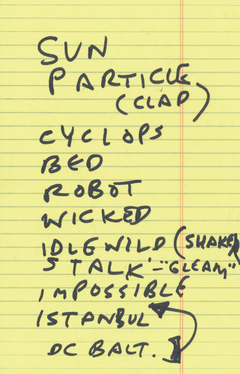 SUN
PARTICLE
(CLAP)
CYCLOPS
BED
ROBOT
WICKED
IDLEWILD (SHAKE)
STALK - "GLEAM"
IMPOSSIBLE
ISTANBUL
DC BALT.